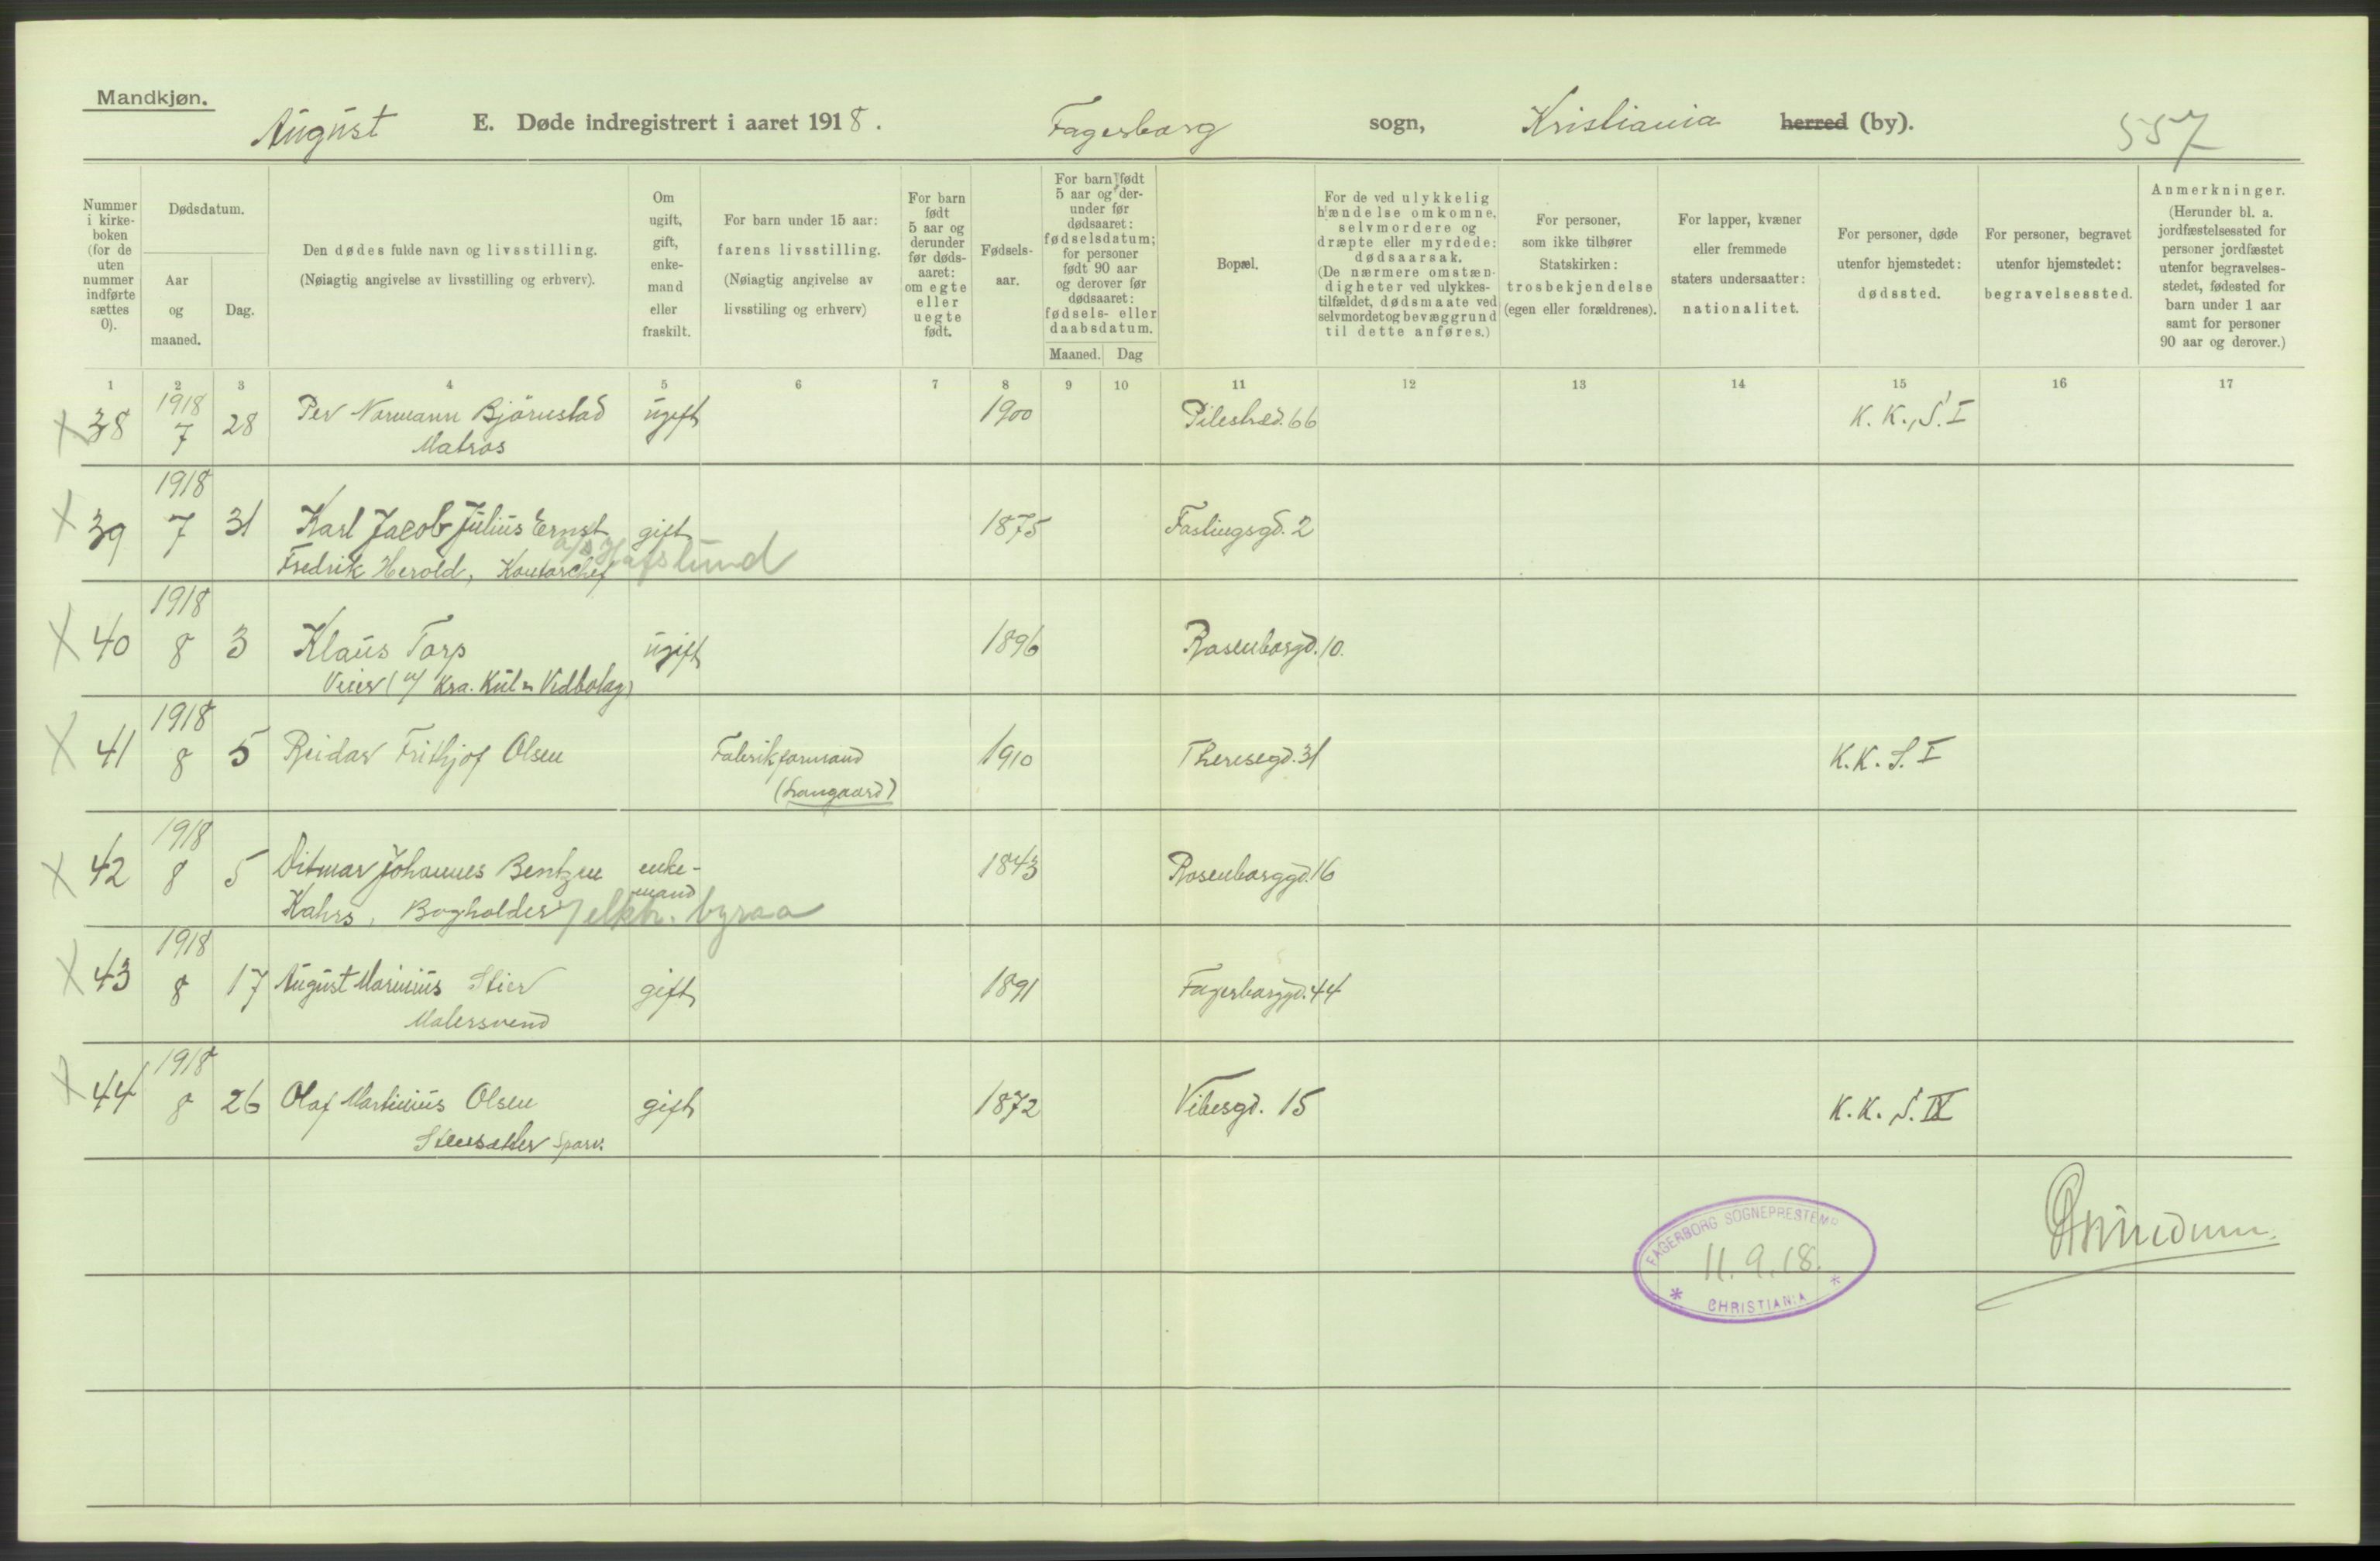 Mandkjøn.
August E. Døde indregistrert i aaret 1918. Fagerborg sogn, Kristiania herred (by). 557
Nummer i kirke-boken (for de uten nummer indførte sættes 0).
Dødsdatum.
Aar og maaned.
Dag.
Den dødes fulde navn og livsstilling.
(Nøiagtig angivelse av livsstilling og erhverv).
Om ugift, gift, enke-mand eller fraskilt.
For barn under 15 aar: farens livsstilling.
(Nøiagtig angivelse av livsstiling og erhverv)
For barn født 5 aar og derunder før døds-aaret: om egte eller uegte født.
Fødsels-aar.
For barn født 5 aar og der-under før dødsaaret: fødselsdatum; for personer født 90 aar og derover før dødsaaret: fødsels- eller daabsdatum.
Maaned. Dag
Bopæl.
For de ved ulykkelig hændelse omkomne, selvmordere og dræpte eller myrdede: dødsaarsak.
(De nærmere omstæn-digheter ved ulykkes-tilfældet, dødsmaate ved selvmordet og bevæggrund til dette anføres.)
For personer, som ikke tilhører Statskirken: trosbekjendelse (egen eller forældrenes).
For lapper, kvæner eller fremmede staters undersaatter: nationalitet.
For personer, døde utenfor hjemstedet: dødssted.
For personer, begravet utenfor hjemstedet: begravelsessted.
Anmerkninger.
(Herunder bl. a. jordfæstelsessted for personer jordfæstet utenfor begravelses-stedet, fødested for barn under 1 aar samt for personer 90 aar og derover.)
1 2 3 4 5 6 7 8 9 10 11 12 13 14 15 16 17
X 38 1918 7 28 Per Normann Bjørnstad ugift 1900 Pilestræd. 66 K. K., S. I
Matros
X 39 1918 7 31 Karl Jacob Julius Ernst gift 1875 Fastingsgd. 2
Fredrik Herold, Kontorchef a/s Hafslund
X 40 1918 8 3 Klaus Torp ugift 1896 Rosenborgd. 10.
Veier (v/ Kra. Kul & Vedbolag)
X 41 1918 8 5 Reidar Frithjof Olsen Fabrikformand 1910 Theresegd. 31 K. K. S. I
(Langaard)
X 42 1918 8 5 Ditmar Johannes Bentzen enke- 1843 Rosenborggd. 16
Kahrs, Bogholder / elktr. byraa mand
X 43 1918 8 17 August Marinius Stier gift 1891 Fagerborggd. 44
Malersvend
X 44 1918 8 26 Olaf Martinius Olsen gift 1872 Vibesgd. 15 K. K. S. IX
Stensætter Sporv.
FAGERBORG SOGNEPRESTEMB
11. 9. 18.
* CHRISTIANIA *